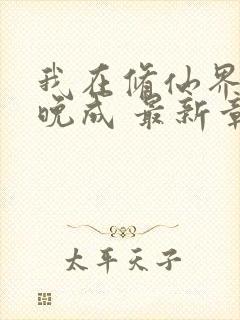 我在修仙界
晚成 最新章
太平天子